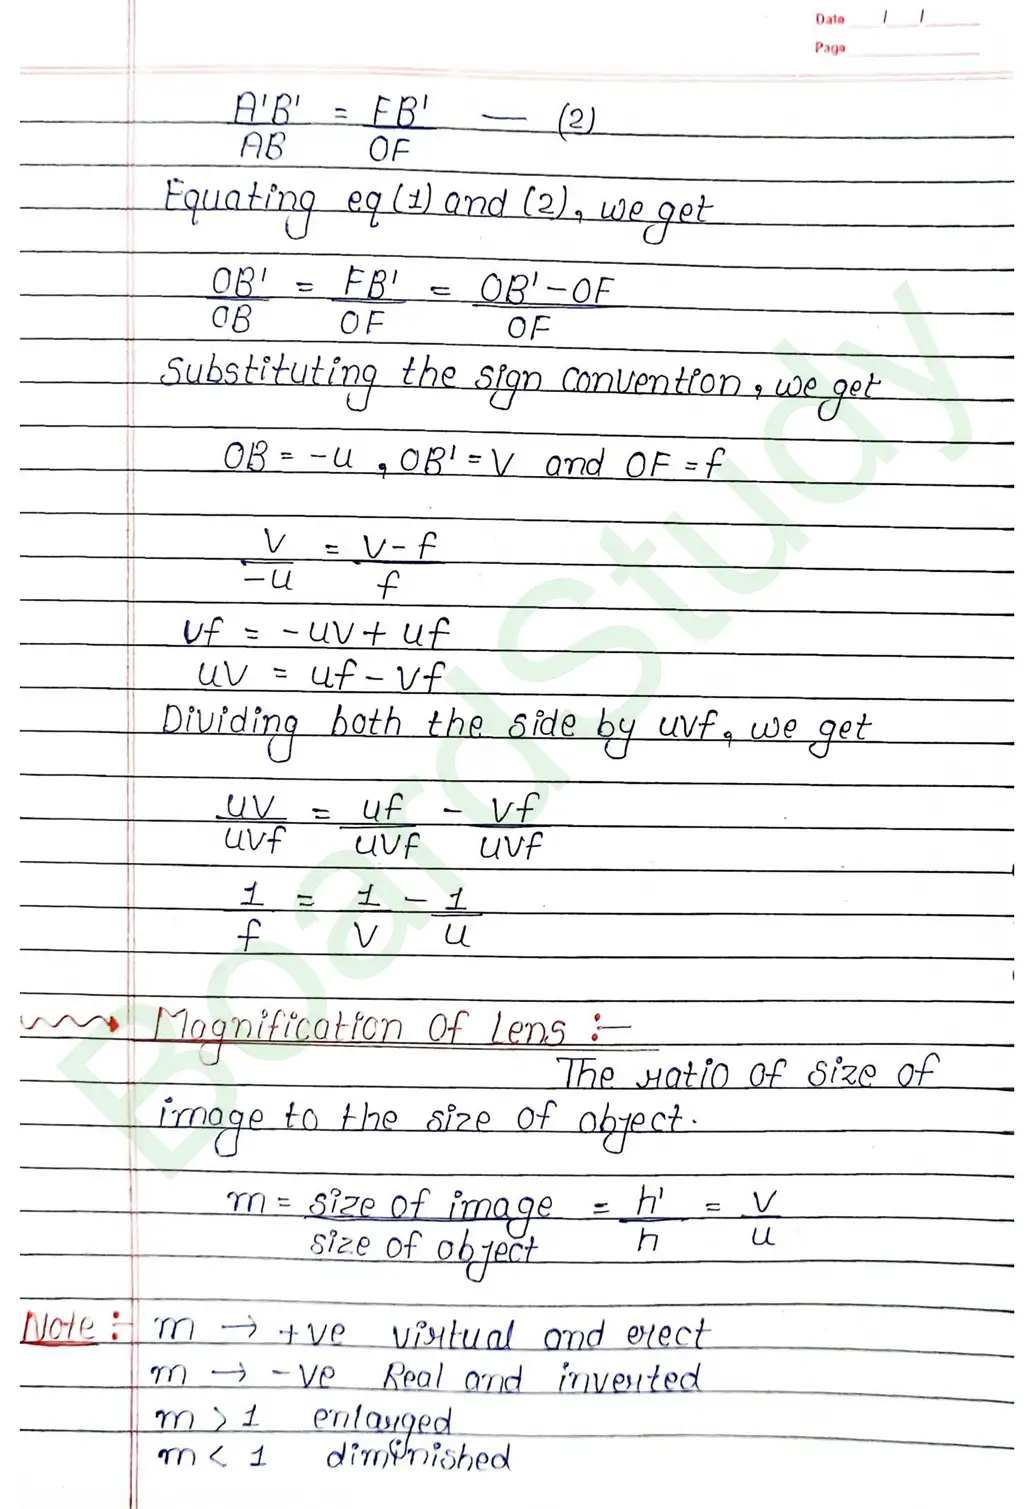 Date / /
Page
A'B' = FB' — (2)
AB OF
Equating eq (1) and (2), we get
OB' = FB' = OB'-OF
OB OF OF
Substituting the sign convention, we get
OB = -u , OB' = v and OF = f
v = v-f
-u f
vf = -uv + uf
uv = uf - vf
Dividing both the side by uvf, we get
uv = uf - vf
uvf uvf uvf
1 = 1 - 1
f v u
Magnification Of Lens :-
The ratio of size of
image to the size of object.
m = size of image = h' = v
size of object h u
Note :- m → +ve virtual and erect
m → -ve Real and inverted
m > 1 enlarged
m < 1 diminished
BoardStudy